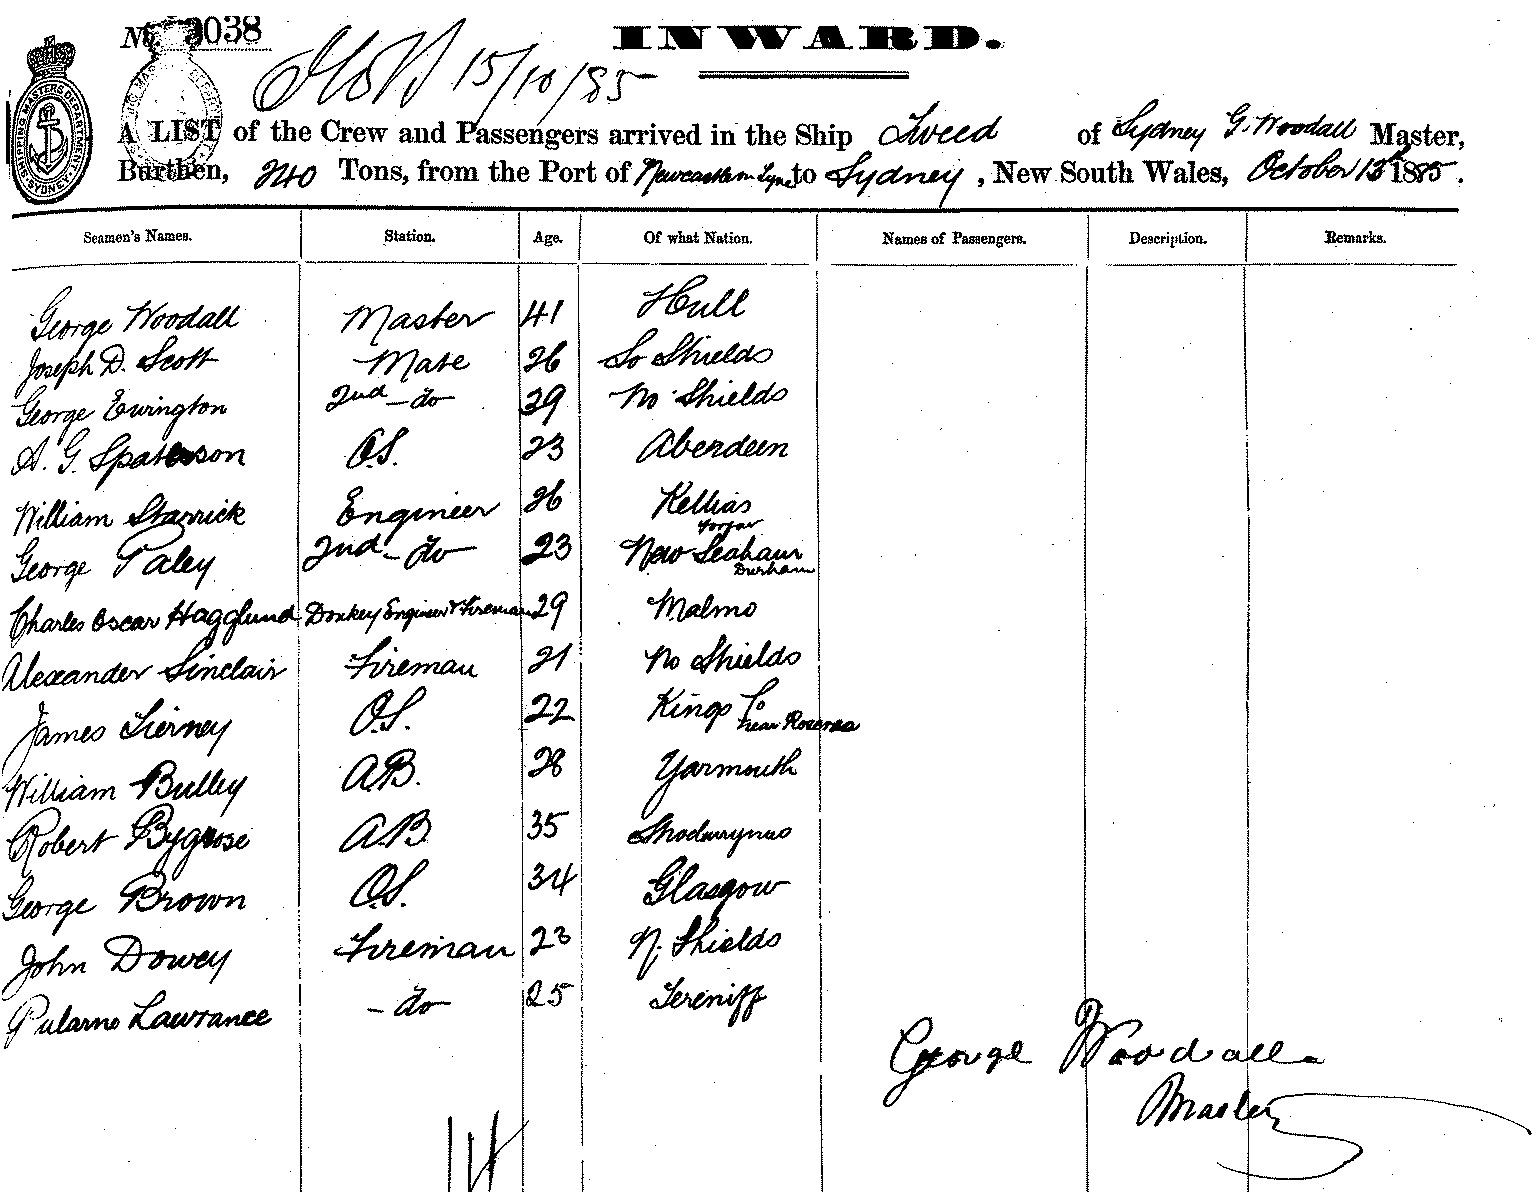 No. 3038
INWARD.
15/10/85
A LIST of the Crew and Passengers arrived in the Ship Tweed of Sydney G. Woodall Master,
Burthen, 240 Tons, from the Port of Newcastle on Tyne to Sydney, New South Wales, October 13th 1885.
Seamen's Names. Station. Age. Of what Nation. Names of Passengers. Description. Remarks.
George Woodall Master 41 Hull
Joseph D. Scott Mate 26 So Shields
George Ewington 2nd - do 39 No Shields
A. G. Spaterson O.S. 23 Aberdeen
William Starrick Engineer 26 Kellias
Forfar
George Paley 2nd - do 23 New Seaham
Durham
Charles Oscar Hagglund Donkey Engineer & Fireman 29 Malmo
Alexander Sinclair Fireman 21 No Shields
James Tierney O.S. 22 Kings Co
near Roscrea
William Bulley A.B. 28 Yarmouth
Robert Bygrose A.B. 35
George Brown O.S. 34 Glasgow
John Dowey Fireman 23 N. Shields
Pularno Lawrance - do 25 Tereniff
George Woodall
Master
14
SHIPPING MASTERS DEPARTMENT SYDNEY